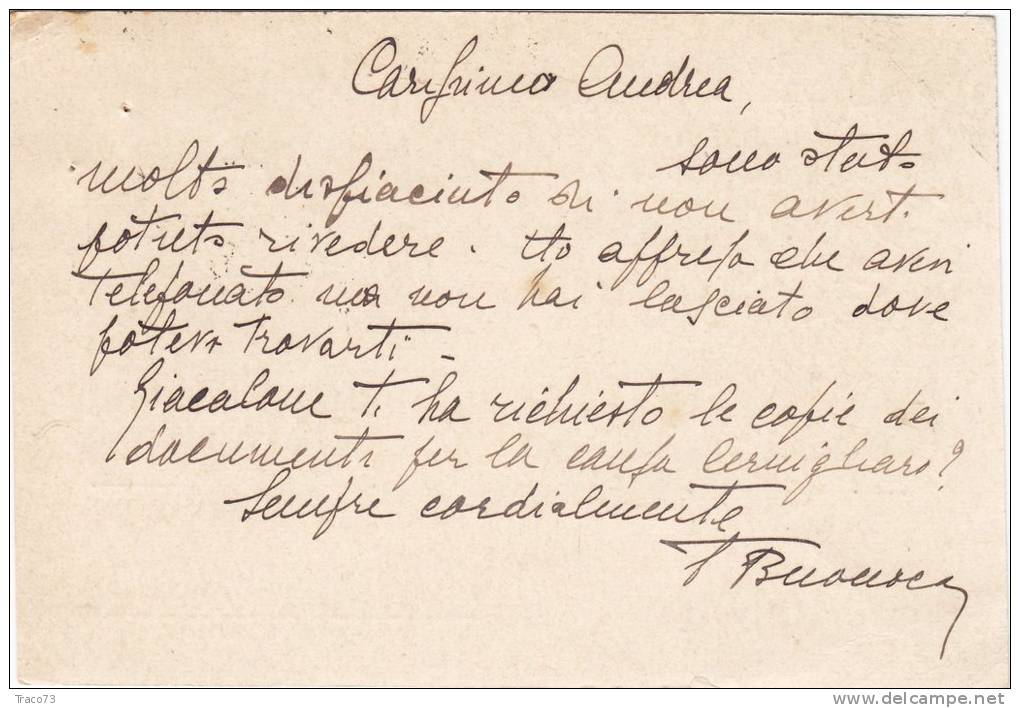 Carissimo Andrea,
sono stato
molto dispiaciuto di non averti
potuto rivedere. Ho appreso che avevi
telefonato ma non hai lasciato dove
potevo trovarti -
Giacalone ti ha richiesto le copie dei
documenti per la causa Cernigliaro?
Sempre cordialmente
Traco73
www.delcampe.net